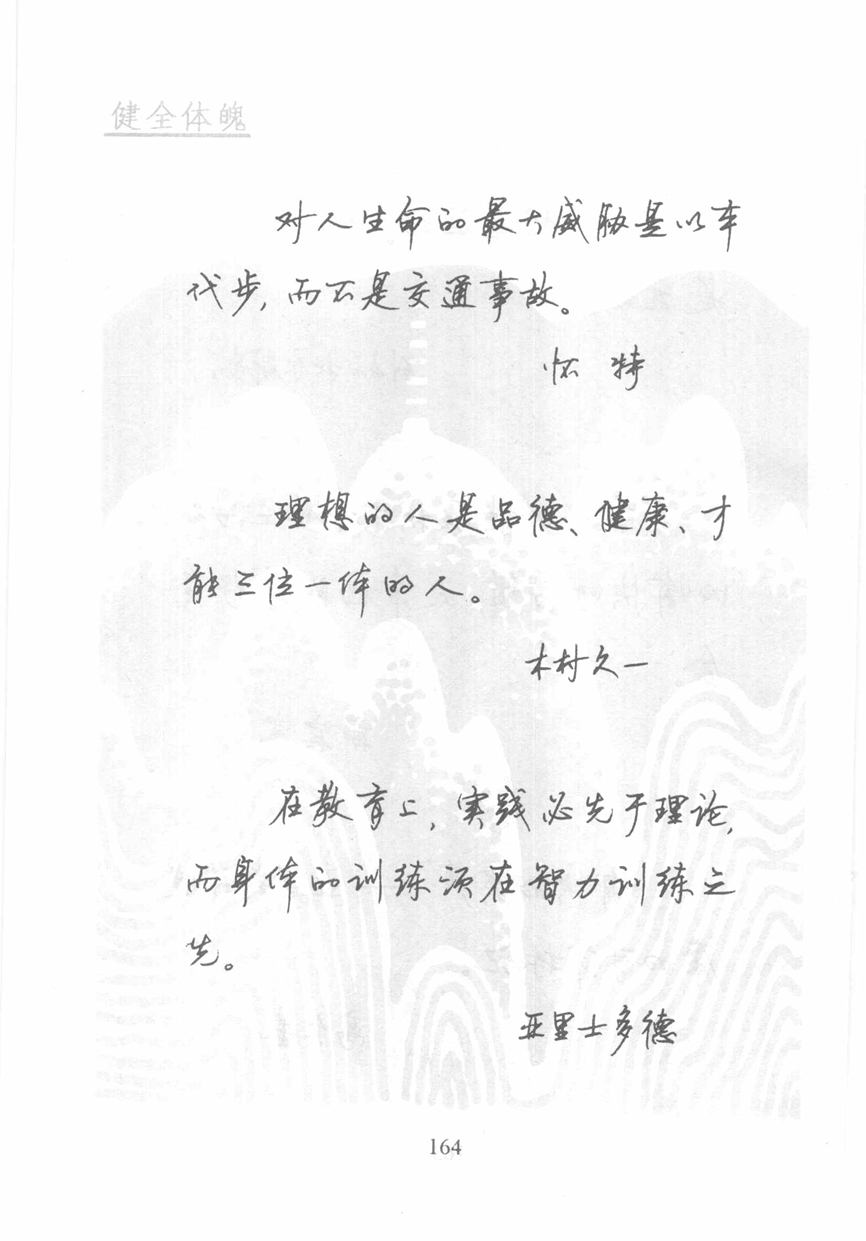 健全体魄
对人生命的最大威胁是以车
代步,而不是交通事故。
怀 特
理想的人是品德、健康、才
能三位一体的人。
木村久一
在教育上,实践必先于理论,
而身体的训练须在智力训练之
先。
亚里士多德
164